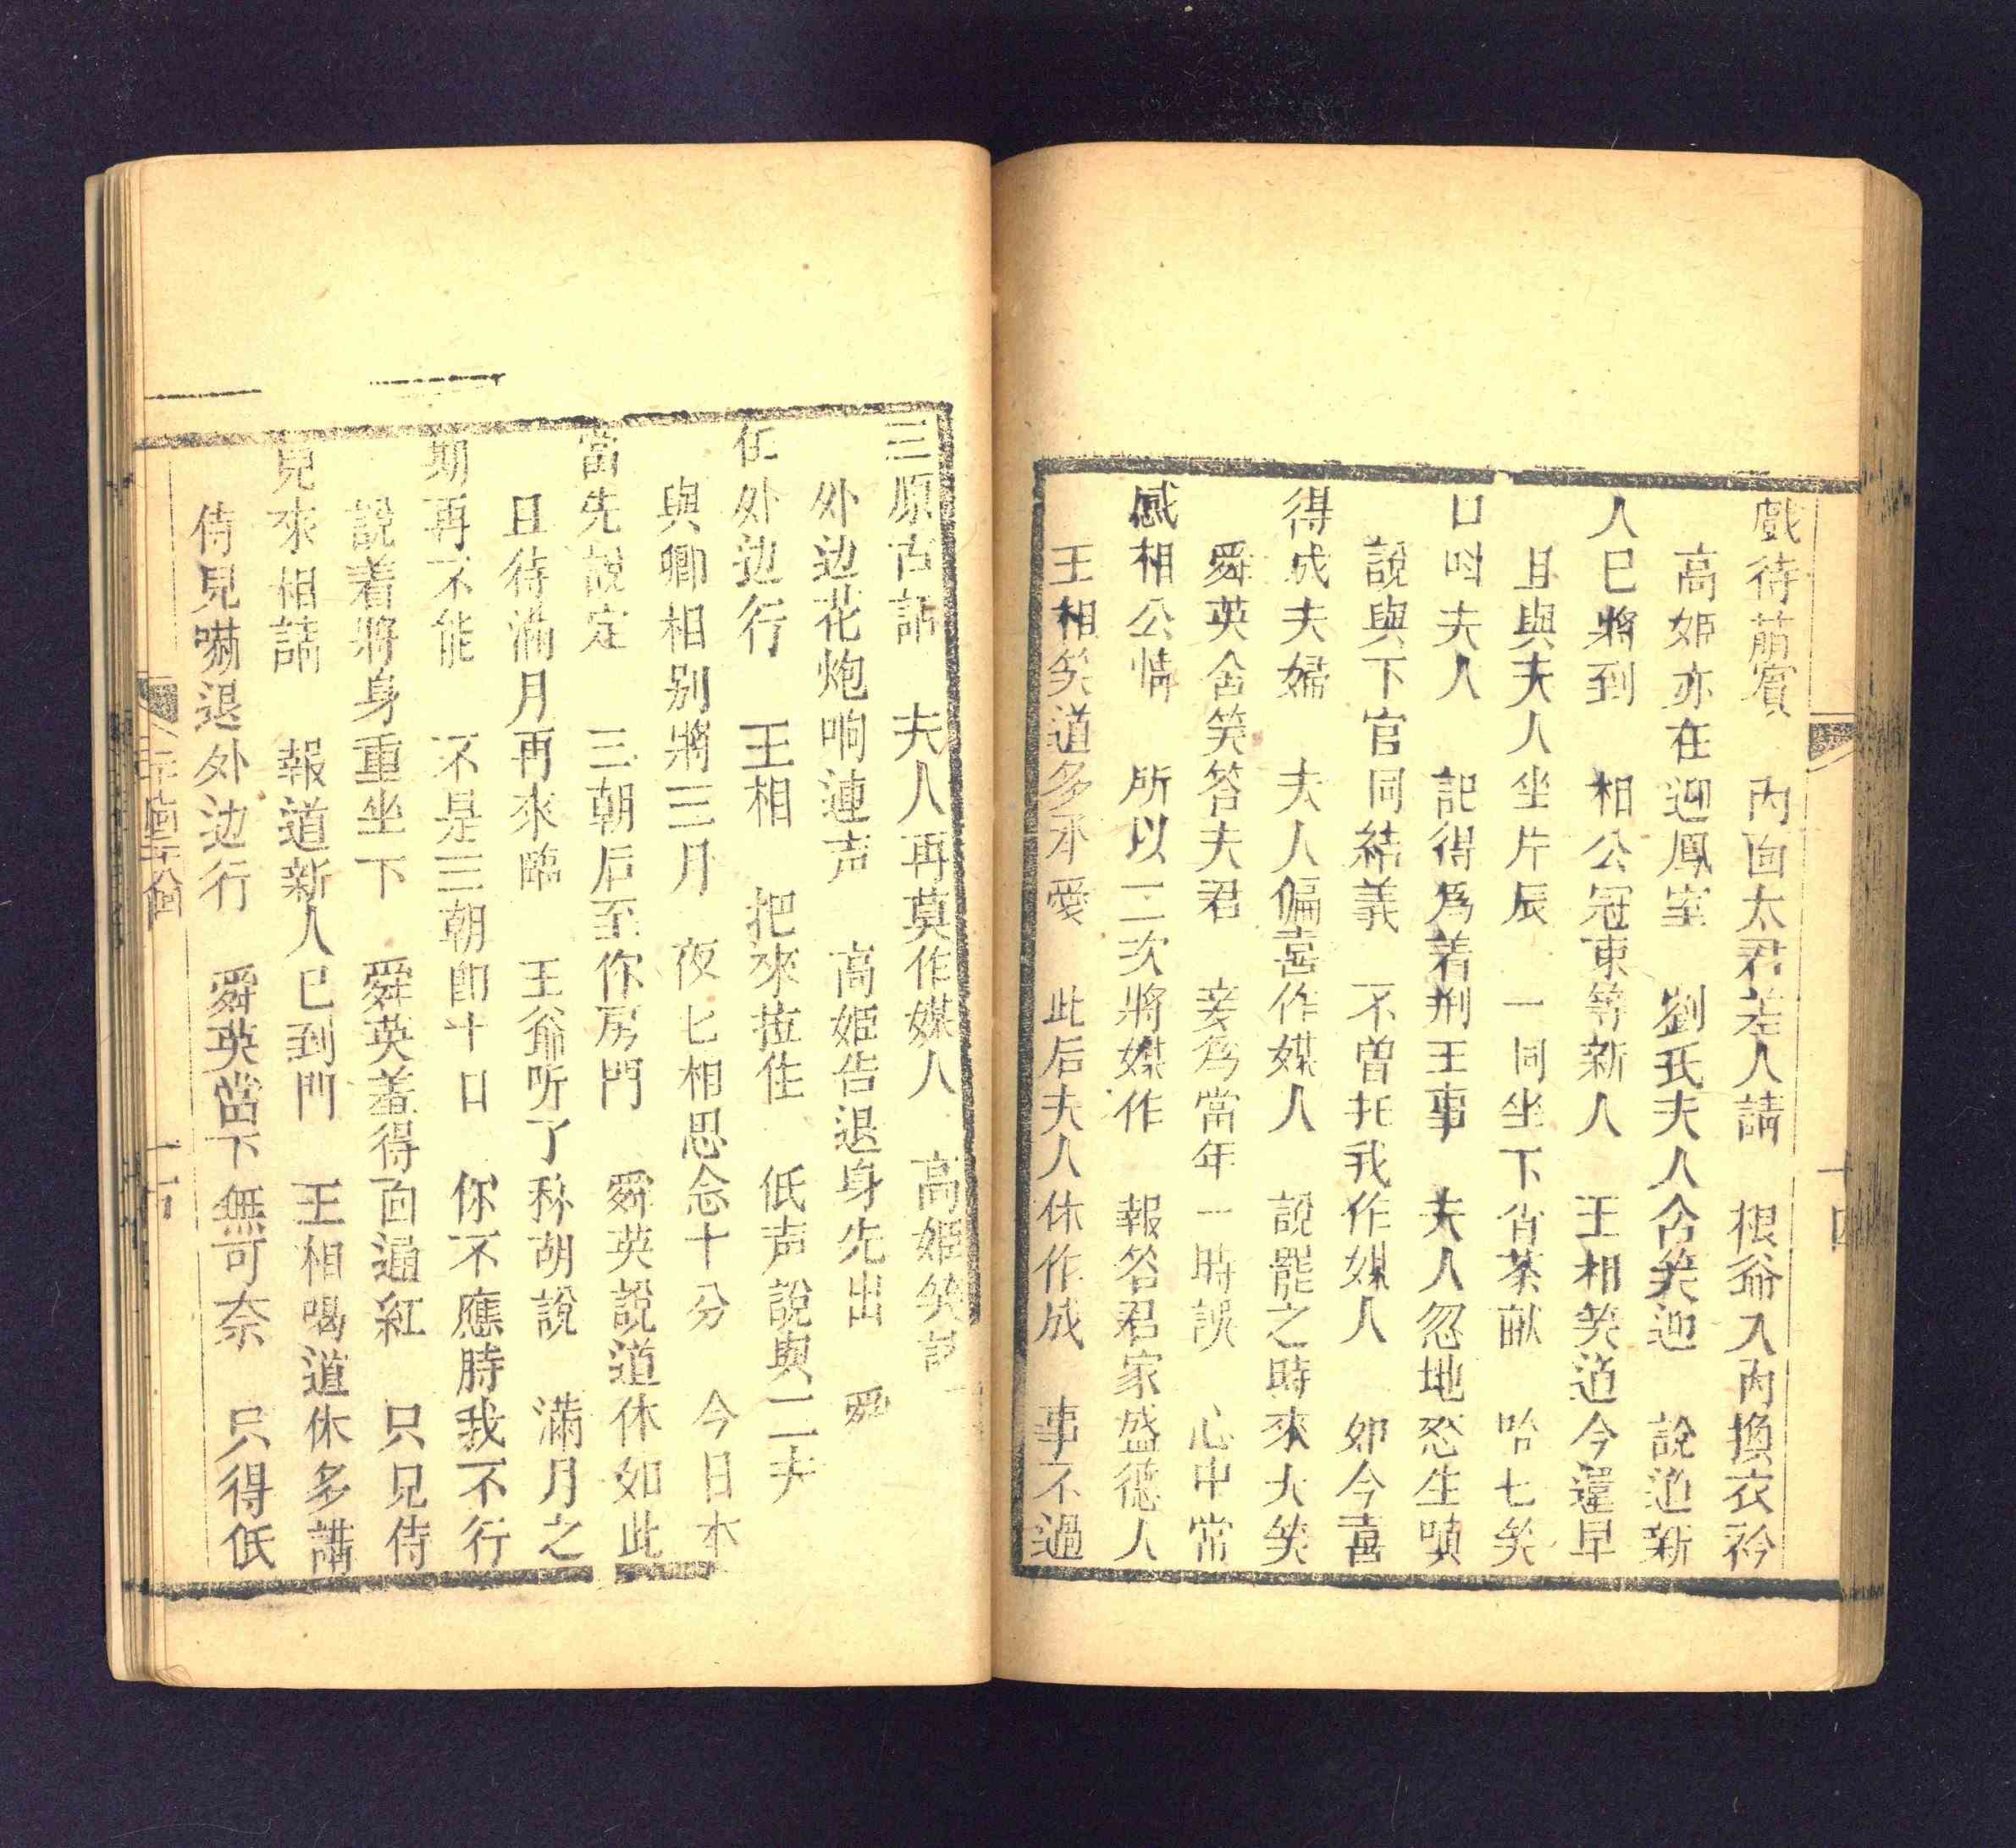 戲待萠賔　內面太君差人請　根爺入內換衣衿
高姬亦在迎鳳室　劉氏夫人含笑迎　說道新
人巳將到　相公冠束等新人　王相笑道今還早
且與夫人坐片辰　一同坐下省茶献　哈七笑
口叫夫人　記得爲着荆王事　夫人忽地怒生嗔
說與下官同結義　不曽托我作媒人　如今喜
得成夫婦　夫人偏喜作媒人　說罷之時來大笑
舜英含笑答夫君　妾爲當年一時誤　心中常
感相公情　所以二次將媒作　報答君家盛德人
王相笑道多承愛　此后夫人休作成　事不過
三原古話　夫人再莫作媒人　高姬笑說
外边花炮响連声　高姬告退身先出　舜
在外边行　王相　把來拉住　低声說與二夫
與卿相别將三月　夜匕相思念十分　今日本
當先說定　三朝后至你房門　舜英說道休如此
且待滿月再來臨　王爺听了称胡說　滿月之
期再不能　不是三朝卽十日　你不應時我不行
說着將身重坐下　舜英羞得面通紅　只見侍
兒來相請　報道新人巳到門　王相喝道休多講
侍見嚇退外边行　舜英當下無可奈　只得低